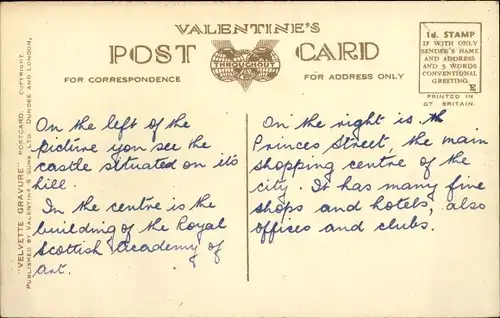 VALENTINE'S
POST CARD
THROUGHOUT
FOR CORRESPONDENCE
FOR ADDRESS ONLY
1d. STAMP
IF WITH ONLY
SENDER'S NAME
AND ADDRESS
AND 5 WORDS
CONVENTIONAL
GREETING.
E
PRINTED IN
GT. BRITAIN.
"VELVETTE GRAVURE" POSTCARD. COPYRIGHT.
PUBLISHED BY VALENTINE & SONS LTD. DUNDEE AND LONDON.
On the left of the
picture you see the
castle situated on its
hill.
In the centre is the
building of the Royal
Scottish Academy of
art.
In the right is
Princes Street, the main
shopping centre of the
city. It has many fine
shops and hotels, also
offices and clubs.